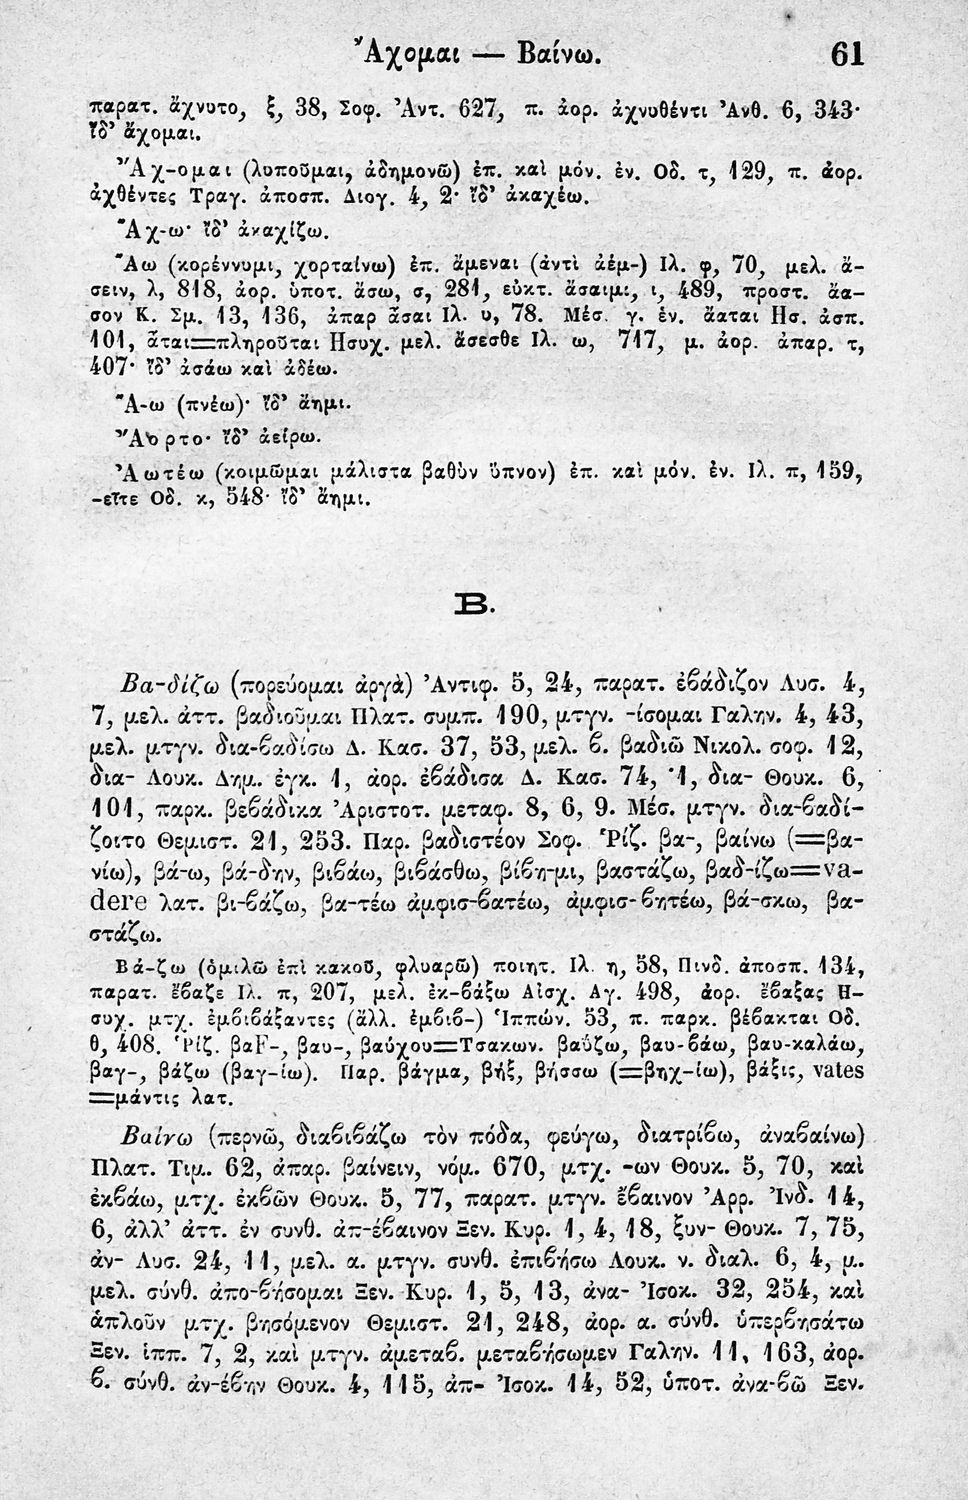 Ἄχομαι — Βαίνω. 61
παρατ. ἄχνυτο, ξ, 38, Σοφ. Ἀντ. 627, π. ἀορ. ἀχνυθέντι Ἀνθ. 6, 343·
ἴδ' ἄχομαι.
Ἄχ-ομαι (λυποῦμαι, ἀδημονῶ) ἐπ. καὶ μόν. ἐν. Οδ. τ, 129, π. ἀορ.
ἀχθέντες Τραγ. ἀποσπ. Διογ. 4, 2· ἴδ' ἀκαχέω.
Ἄχ-ω· ἴδ' ἀκαχίζω.
Ἄω (κορέννυμι, χορταίνω) ἐπ. ἄμεναι (ἀντὶ ἀέμ-) Ιλ. φ, 70, μελ. ἄ-
σειν, λ, 818, ἀορ. ὑποτ. ἄσω, σ, 281, εὐκτ. ἄσαιμι, ι, 489, προστ. ἄα-
σον Κ. Σμ. 13, 136, ἀπαρ ἆσαι Ιλ. υ, 78. Μέσ. γ. ἑν. ἄαται Ησ. ἀσπ.
101, ἆται=πληροῦται Ησυχ. μελ. ἄσεσθε Ιλ. ω, 717, μ. ἀορ. ἀπαρ. τ,
407· ἴδ' ἀσάω καὶ ἀδέω.
Ἄ-ω (πνέω)· ἴδ' ἄημι.
Ἄορτο· ἴδ' ἀείρω.
Ἀωτέω (κοιμῶμαι μάλιστα βαθὺν ὕπνον) ἐπ. καὶ μόν. ἐν. Ιλ. π, 159,
-εῖτε Οδ. κ, 548· ἴδ' ἄημι.
Β.
Βα-δίζω (πορεύομαι ἀργὰ) Ἀντιφ. 5, 24, παρατ. ἐβάδιζον Λυσ. 4,
7, μελ. ἀττ. βαδιοῦμαι Πλατ. συμπ. 190, μτγν. -ίσομαι Γαλην. 4, 43,
μελ. μτγν. δια-βαδίσω Δ. Κασ. 37, 53, μελ. β. βαδιῶ Νικολ. σοφ. 12,
δια- Λουκ. Δημ. ἐγκ. 1, ἀορ. ἐβάδισα Δ. Κασ. 74, 1, δια- Θουκ. 6,
101, παρκ. βεβάδικα Ἀριστοτ. μεταφ. 8, 6, 9. Μέσ. μτγν. δια-βαδί-
ζοιτο Θεμιστ. 21, 253. Παρ. βαδιστέον Σοφ. Ῥίζ. βα-, βαίνω (=βα-
νίω), βά-ω, βά-δην, βιβάω, βιβάσθω, βίβη-μι, βαστάζω, βαδ-ίζω=va-
dere λατ. βι-βάζω, βα-τέω ἀμφισ-βατέω, ἀμφισ-βητέω, βά-σκω, βα-
στάζω.
Βά-ζω (ὁμιλῶ ἐπὶ κακοῦ, φλυαρῶ) ποιητ. Ιλ. η, 58, Πινδ. ἀποσπ. 134,
παρατ. ἔβαζε Ιλ. π, 207, μελ. ἐκ-βάξω Αἰσχ. Αγ. 498, ἀορ. ἔβαξας Η-
συχ. μτχ. ἐμβιβάξαντες (ἄλλ. ἐμβιβ-) Ἱππών. 53, π. παρκ. βέβακται Οδ.
θ, 408. Ῥίζ. βαF-, βαυ-, βαύχου=Τσακων. βαΰζω, βαυ-βάω, βαυ-καλάω,
βαγ-, βάζω (βαγ-ίω). Παρ. βάγμα, βήξ, βήσσω (=βηχ-ίω), βάξις, vates
=μάντις λατ.
Βαίνω (περνῶ, διαβιβάζω τὸν πόδα, φεύγω, διατρίβω, ἀναβαίνω)
Πλατ. Τιμ. 62, ἀπαρ. βαίνειν, νόμ. 670, μτχ. -ων Θουκ. 5, 70, καὶ
ἐκβάω, μτχ. ἐκβῶν Θουκ. 5, 77, παρατ. μτγν. ἔβαινον Ἀρρ. Ἰνδ. 14,
6, ἀλλ' ἀττ. ἐν συνθ. ἀπ-έβαινον Ξεν. Κυρ. 1, 4, 18, ξυν- Θουκ. 7, 75,
ἀν- Λυσ. 24, 11, μελ. α. μτγν. συνθ. ἐπιβήσω Λουκ. ν. διαλ. 6, 4, μ.
μελ. σύνθ. ἀπο-βήσομαι Ξεν. Κυρ. 1, 5, 13, ἀνα- Ἰσοκ. 32, 254, καὶ
ἁπλοῦν μτχ. βησόμενον Θεμιστ. 21, 248, ἀορ. α. σύνθ. ὑπερβησάτω
Ξεν. ἱππ. 7, 2, καὶ μτγν. ἀμεταβ. μεταβήσωμεν Γαλην. 11, 163, ἀορ.
β. σύνθ. ἀν-έβην Θουκ. 4, 115, ἀπ- Ἰσοκ. 14, 52, ὑποτ. ἀνα-βῶ Ξεν.